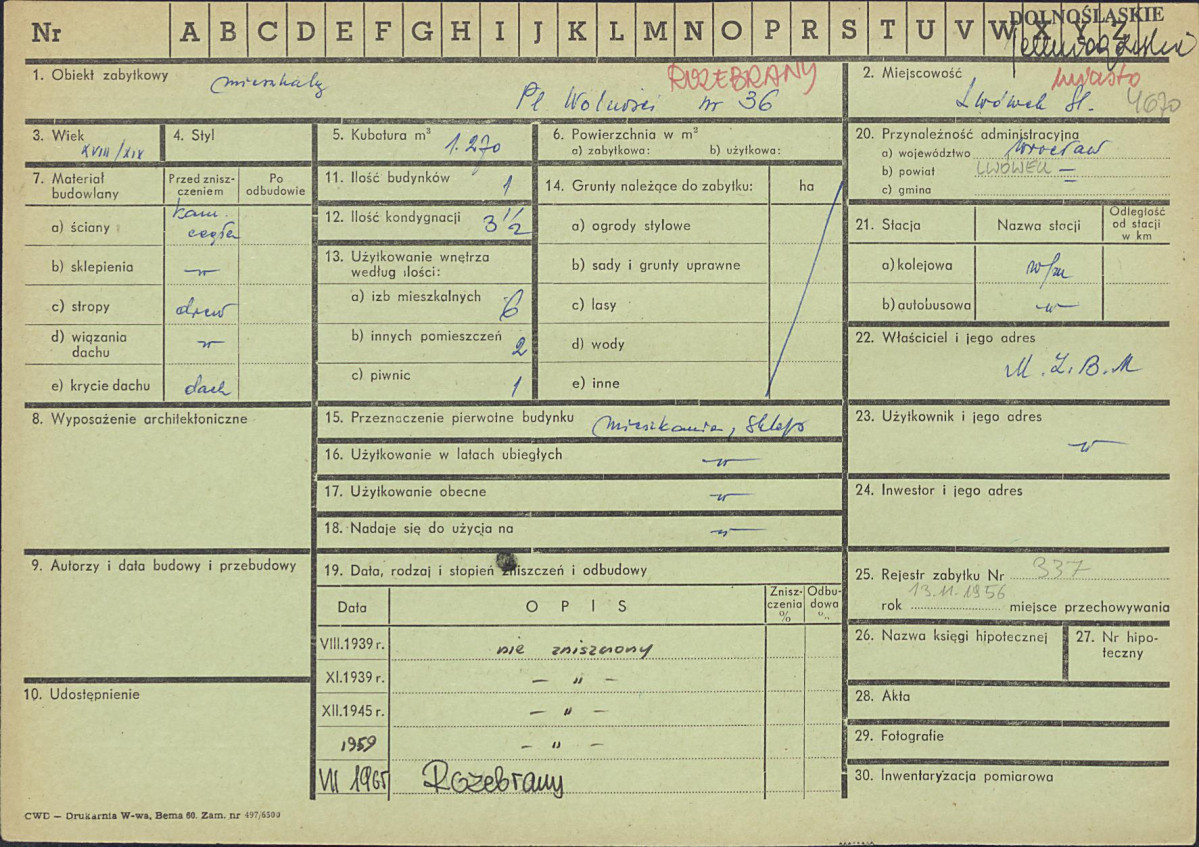 Nr A B C D E F G H I J K L M N O P R S T U V W X Y Z
DOLNOŚLĄSKIE
1. Obiekt zabytkowy
mieszkalny
ROZEBRANY
Pl Wolności nr 36
2. Miejscowość
miasto
Lwówek Śl. 4670
3. Wiek
XVIII/XIX
4. Styl
5. Kubatura m³
1.270
6. Powierzchnia w m²
a) zabytkowa: b) użytkowa:
7. Materiał budowlany
Przed znisz-
czeniem
Po
odbudowie
a) ściany
kam.
cegła
b) sklepienia
—"—
c) stropy
drew
d) wiązania
dachu
—"—
e) krycie dachu
dach
8. Wyposażenie architektoniczne
9. Autorzy i data budowy i przebudowy
10. Udostępnienie
11. Ilość budynków
1
12. Ilość kondygnacji
3 1/2
13. Użytkowanie wnętrza
według ilości:
a) izb mieszkalnych
6
b) innych pomieszczeń
2
c) piwnic
1
14. Grunty należące do zabytku: ha
a) ogrody stylowe
b) sady i grunty uprawne
c) lasy
d) wody
e) inne
15. Przeznaczenie pierwotne budynku
mieszkania, sklep
16. Użytkowanie w latach ubiegłych
—"—
17. Użytkowanie obecne
—"—
18. Nadaje się do użycia na
—"—
19. Data, rodzaj i stopień zniszczeń i odbudowy
Data OPIS
Znisz-
czenia
%
Odbu-
dowa
%
VIII.1939 r. nie zniszczony
XI.1939 r. — " —
XII.1945 r. — " —
1959 — " —
VII 1965 Rozebrany
20. Przynależność administracyjna
a) województwo Wrocław
b) powiat LWÓWEK =
c) gmina
21. Stacja
Nazwa stacji
Odległość
od stacji
w km
a) kolejowa w/m
b) autobusowa —"—
22. Właściciel i jego adres
M.Z.B.M
23. Użytkownik i jego adres
—"—
24. Inwestor i jego adres
25. Rejestr zabytku Nr 337
13.11.1956
rok miejsce przechowywania
26. Nazwa księgi hipotecznej
27. Nr hipo-
teczny
28. Akta
29. Fotografie
30. Inwentaryzacja pomiarowa
CWD — Drukarnia W-wa, Bema 60. Zam. nr 497/6500